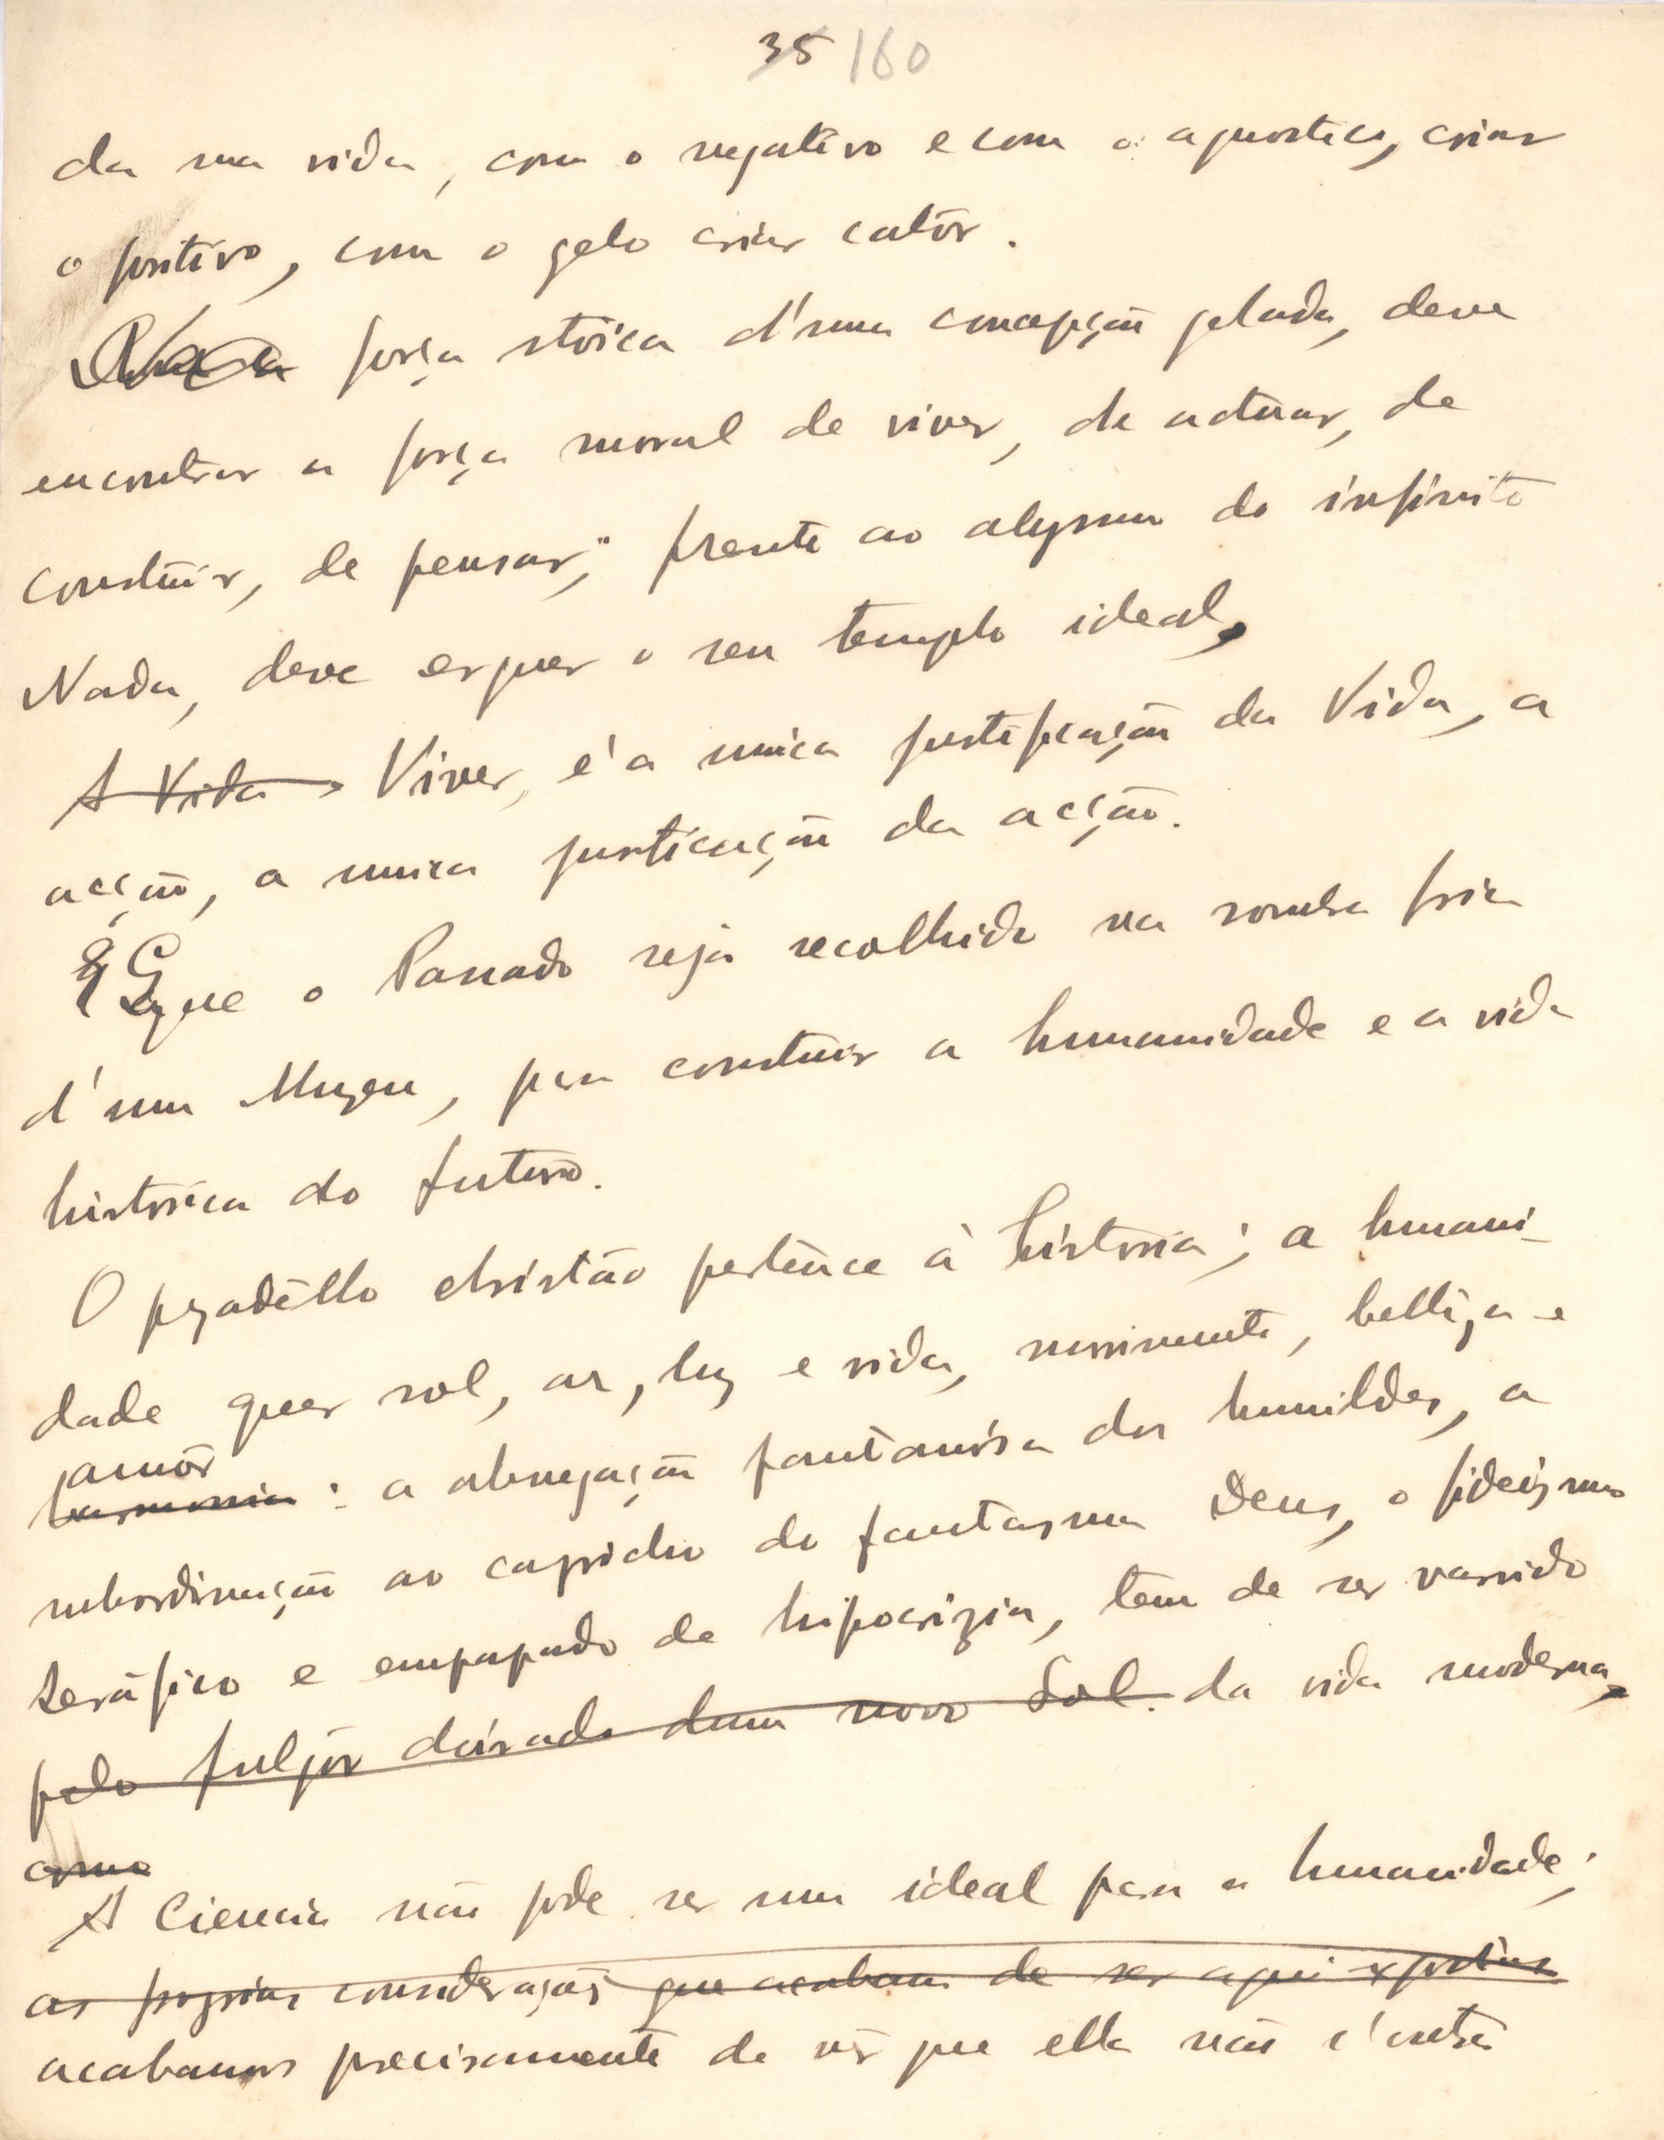 35 160
da sua vida, com o negativo e com o agnostico, criar
o positivo, com o gelo criar calôr.
força stoica d'uma concepção gelada, deve
encontrar a força moral de viver, de actuar, de
construir, de pensar; frente ao abysmo do infinito
Nada, deve erguer o seu templo ideal,
A Vida Viver, é a unica justificação da Vida, a
acção, a unica justicação da acção.
que o Passado seja recolhido na sombra fria
d'um Muzeu, pra construir a humanidade e a vida
historica do futuro.
O pezadêllo christão pertence à história; a humani-
dade quer sol, ar, luz e vida, movimento, belleza e
amôr
harmonia : a abnegação fantasista dos humildes, a
subordinação ao capricho do fantasma Deus, o fideizmo
seráfico e empapado de hipocrizia, tem de ser varrido
pelo fulgôr doirado dum novo Sol. da vida moderna,
como
A Ciencia não pode ser um ideal para a humanidade;
as proprias considerações que acabam de ser aqui expostas
acabamos precisamente de vêr que ella não é outra